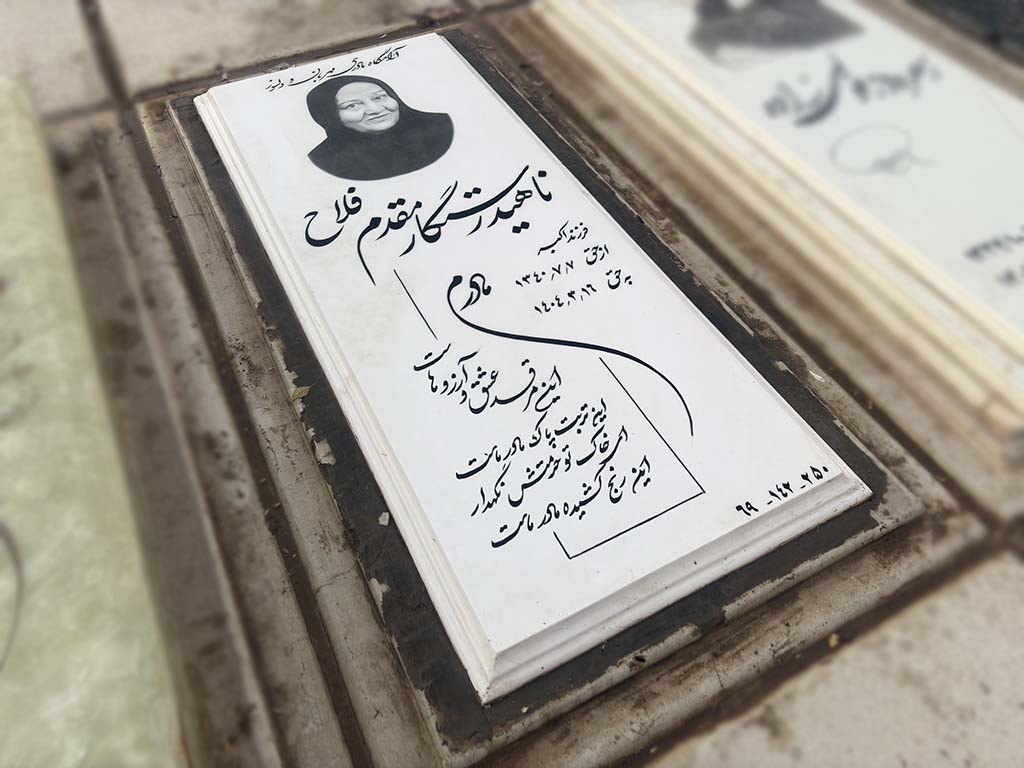 آرامگاه مادری مهربان و دلسوز
ناهید رستگار مقدم فلاح
فرزند اکبر
از حق ۱۳۴۰٫۷٫۷
به حق ۱۴۰۴٫۳٫۱۶
مادرم
این مرقد عشق و آرزوهاست
این تربت پاک مادر ماست
ای خاک تو حرمتش نگهدار
این رنج کشیده مادر ماست
۲۵۰ - ۱۴۲ - ۶۹